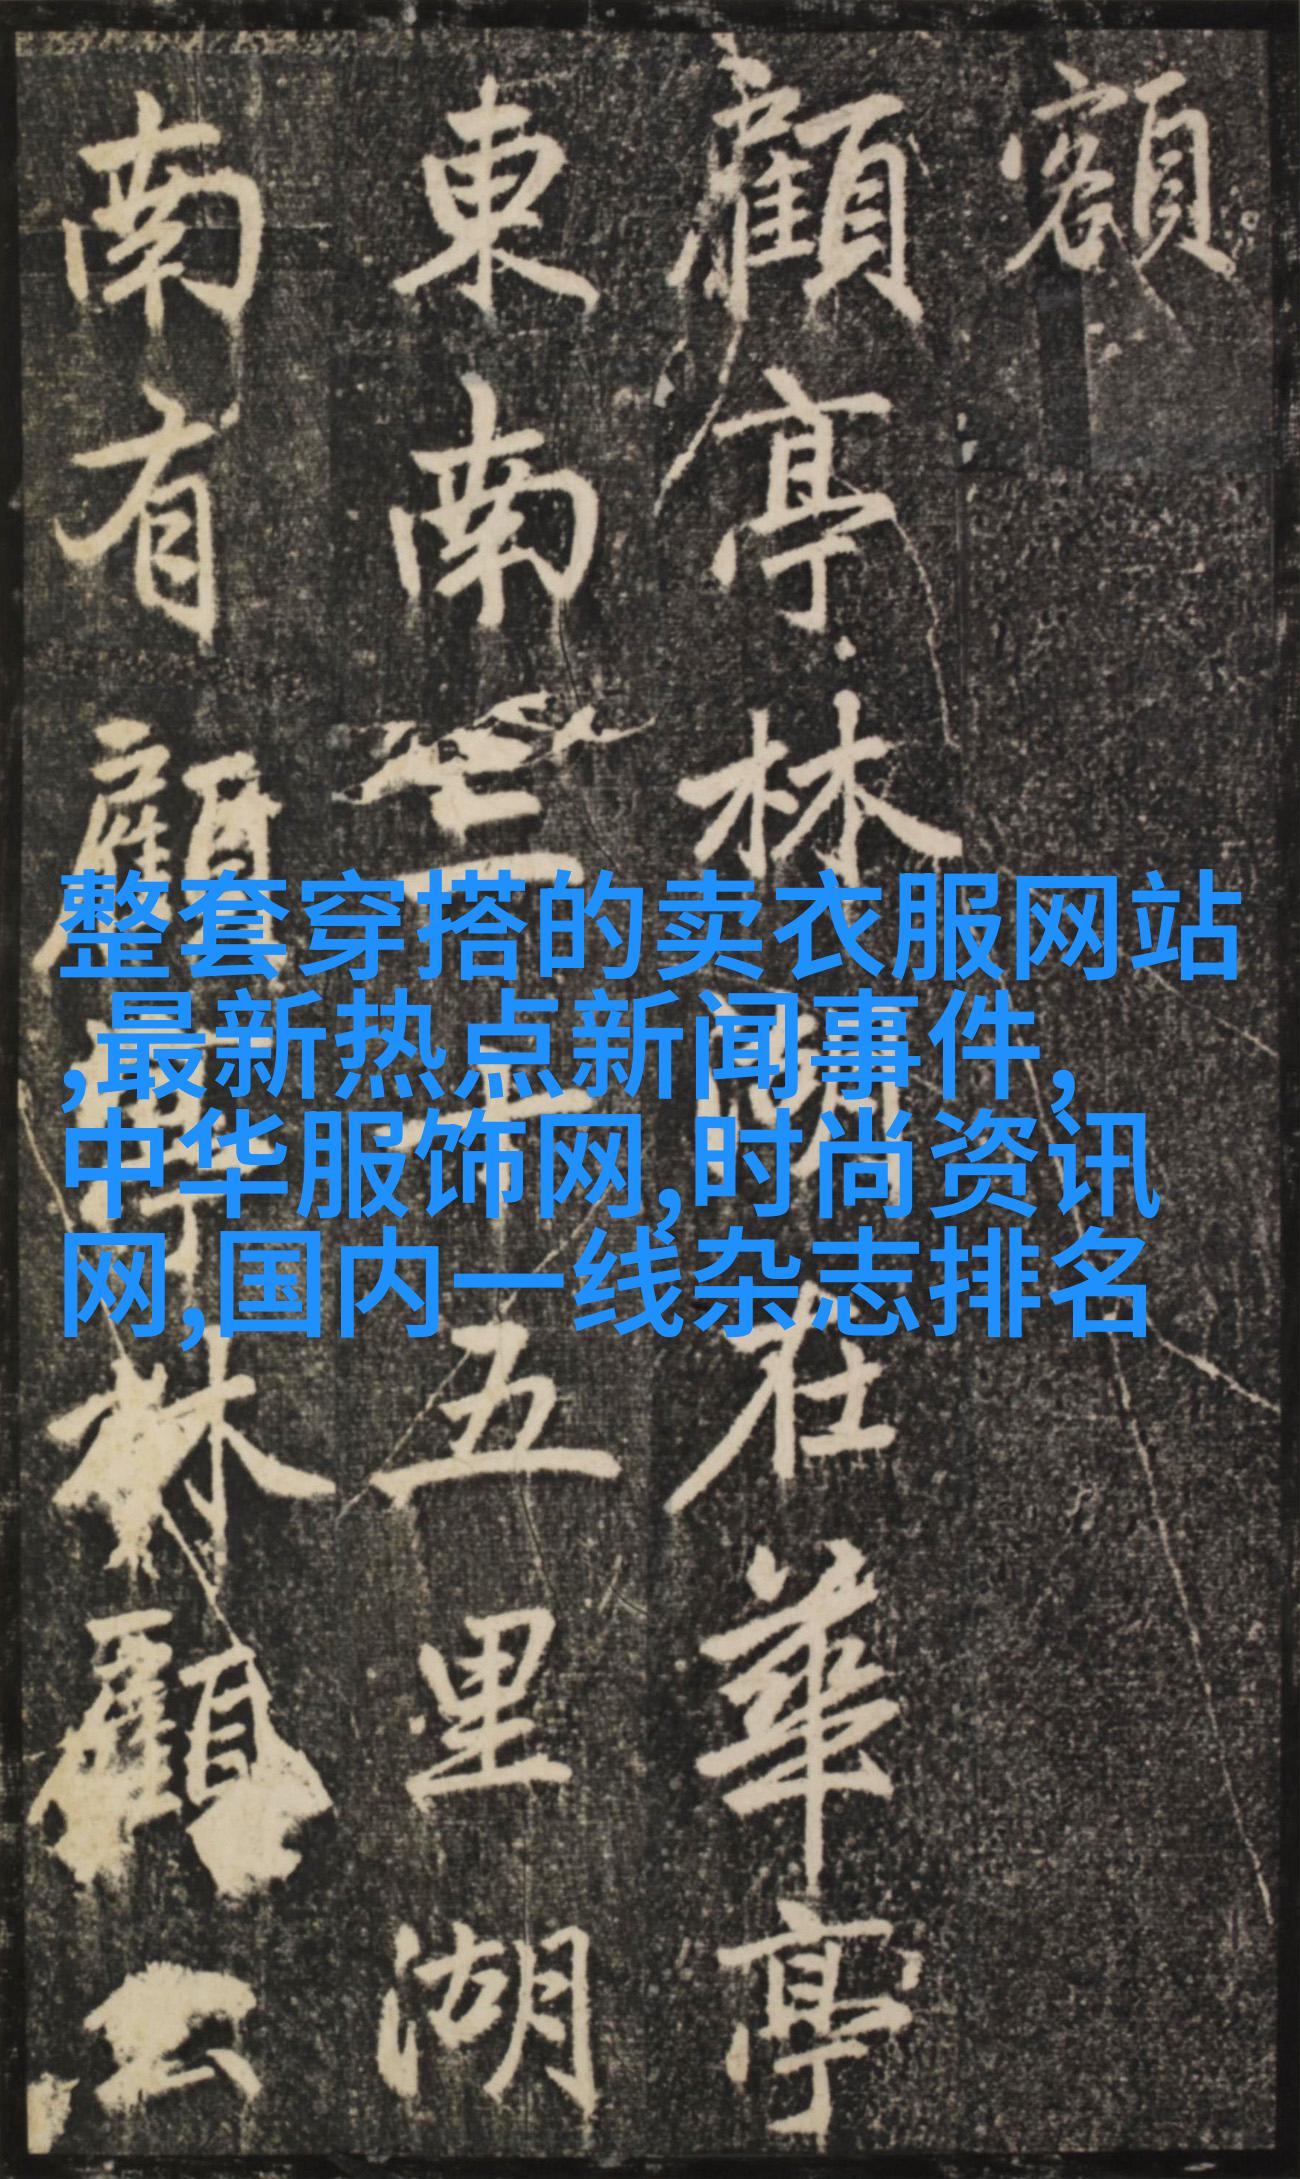 額
顧亭林湖在華亭
東南三十五里湖
南有顧亭林顧公
整套穿搭的卖衣服网站
,最新热点新闻事件,
中华服饰网,时尚资讯
网,国内一线杂志排名